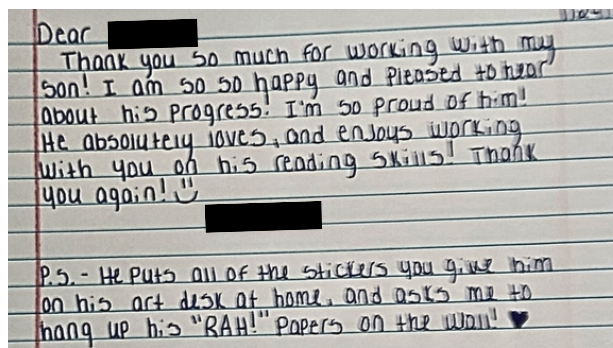 Dear
Thank you so much for working with my
son! I am so so happy and pleased to hear
about his progress! I'm so proud of him!
He absolutely loves, and enjoys working
with you on his reading skills! Thank
you again! :)
P.S. - He puts all of the stickers you give him
on his art desk at home, and asks me to
hang up his "RAH!" Papers on the wall! ♥